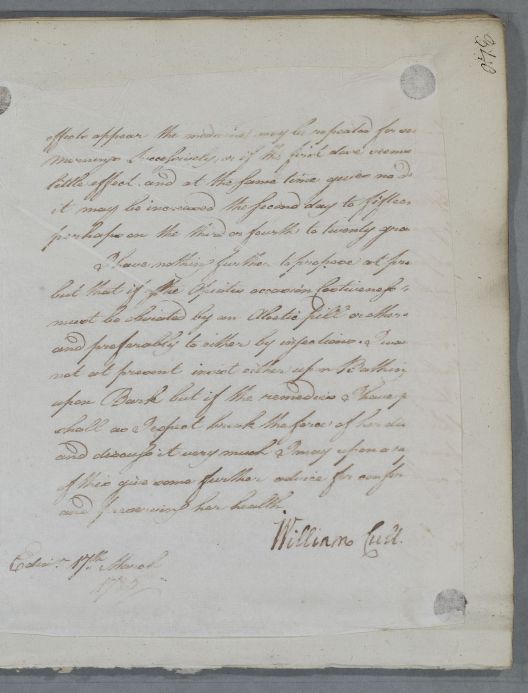 340
effects appear the medicine may be repeated for
mornings successively, or if the first dose
little effect and at the same time gives no
it may be increased the second day to fifteen
perhaps on the third or fourth to twenty gra
I have nothing further to propose at pre
but that if the Opiates occasion Costiveness
must be obviated by an Aloetic pill or other
and preferably to either by injections. I
not at present insist either upon Bathing
upon Bark but if the remedies I have p
shall as I expect break the force of her di
and disease it very much I may upon a
of this give some further advice for confir
and preserving her health
William Cull.
Edinr. 17th. March